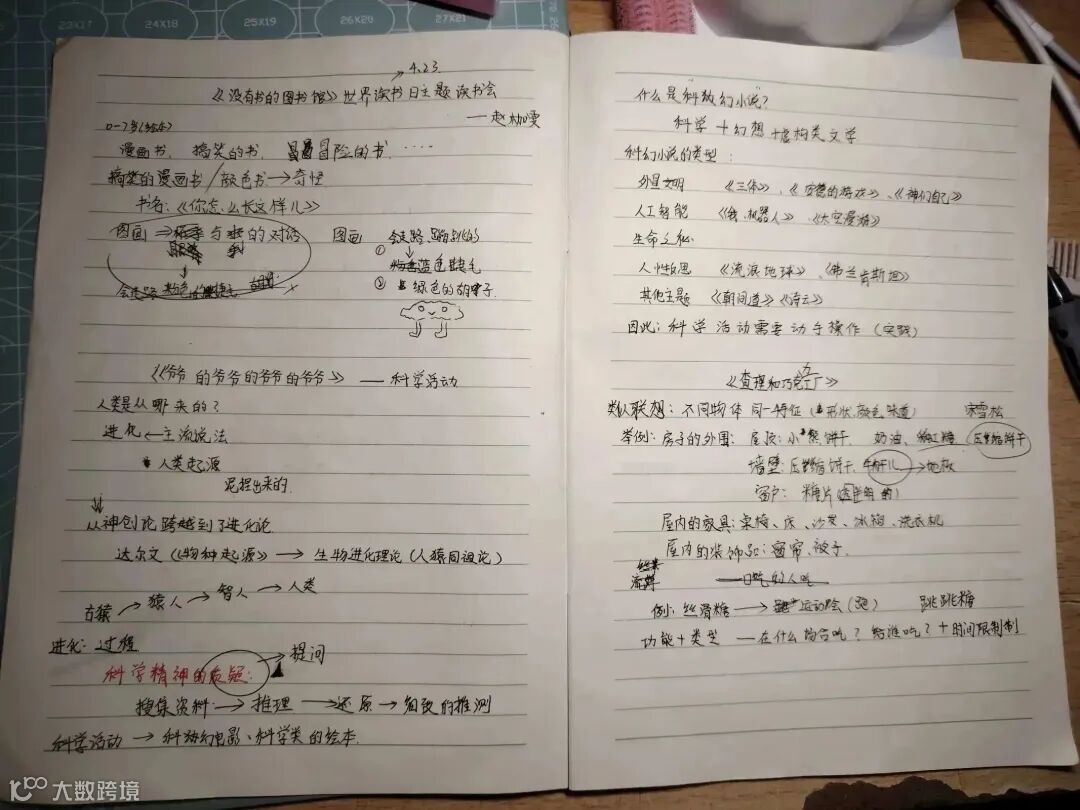 24X18
25X19
26X20
27X21
4.23
《没有书的图书馆》世界读书日主题读书会
——赵
0-7岁(绘本)
漫画书、搞笑的书、冒险的书……
搞笑的漫画书/颜色书→奇怪
书名:《你怎么长这样儿》
图画→ 与 的对话
图画 会走路 跳的
① 蓝色睫毛
② 绿色的胡子
会走路 色的睫毛
《爷爷的爷爷的爷爷的爷爷》——科学活动
人类是从哪来的?
进化←主流说法
人类起源
泥捏出来的
从神创论跨越到了进化论
达尔文《物种起源》→生物进化理论(人猿同祖论)
古猿→猿人→智人→人类
进化:过程
科学精神的质疑:→提问
搜集资料→推理→还原→细致的推测
科学活动→科幻电影、科学类的绘本.
什么是科幻小说?
科学+幻想+虚构类文学
科幻小说的类型:
外星文明 《三体》、《安德的游戏》、《神们自己》
人工智能 《我,机器人》、《太空漫游》
生命之秘
人性反思 《流浪地球》、《弗兰肯斯坦》
其他主题 《朝闻道》《诗云》
因此:科学活动需要动手操作(实践)
《查理和巧克力工厂》
类似联想:不同物体 同一特征(形状、颜色、味道) 宋雪松
举例:房子的外围:屋顶:小熊饼干 奶油、 压缩饼干
墙壁:压缩饼干、 →地板
窗户:糖片(透明的)
屋内的家具:桌椅、床、沙发、冰箱、洗衣机
屋内的装饰品:窗帘、被子.
例:丝滑糖→运动会(跑) 跳跳糖
功能+类型——在什么场合吃?给谁吃?+时间限制
大数跨境